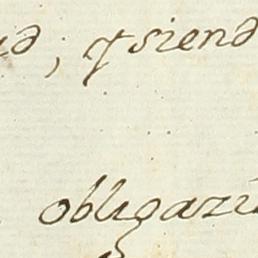 ; y siend
obligazi